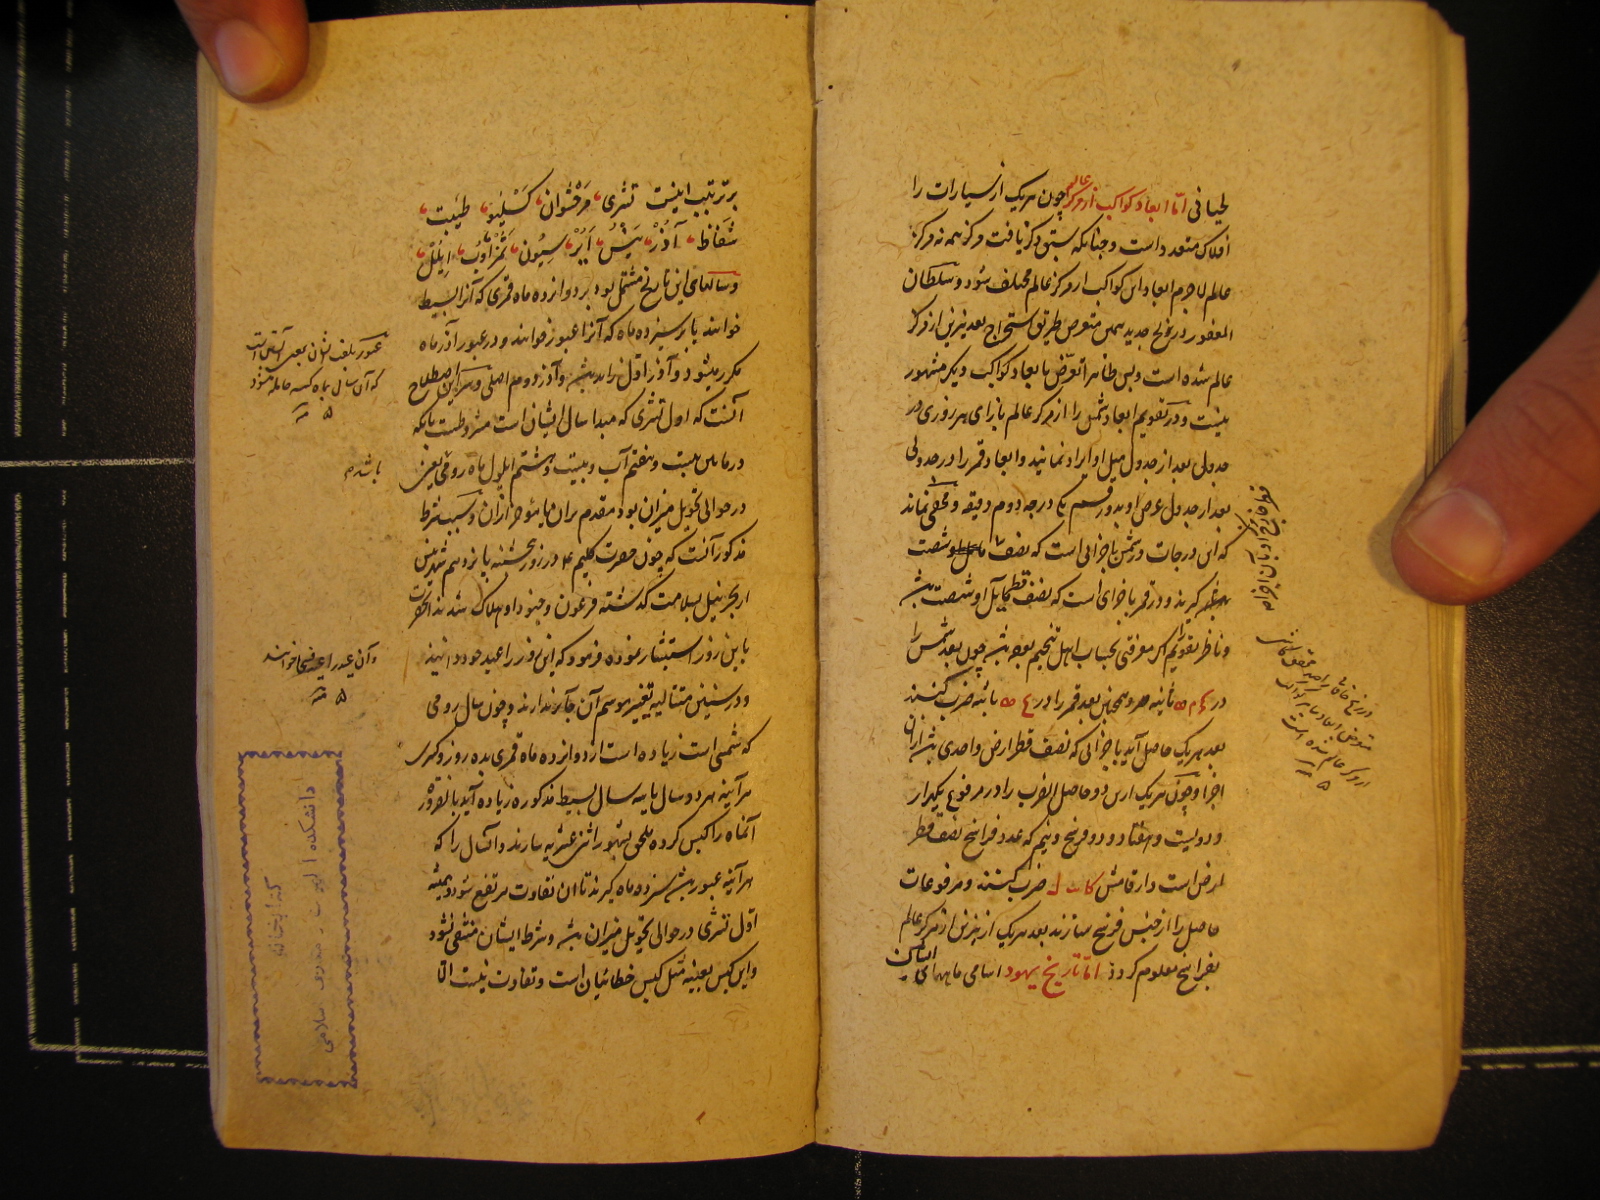 لحیانی اما ابعاد کواکب از مرکز عالم چون هریک از سیارات را
افلاک متعدد است و چنانکه سبق ذکر یافت مرکز همه نه مرکز
عالم لاجرم ابعاد این کواکب از مرکز عالم مختلف شود و سلطان
المغفور در زیج جدید متعرض طریق استخراج بعد نیرین از مرکز
عالم شده است و بس ظاهرا تعرض بابعاد کواکب دیگر مشهور
نیست و در تقویم ابعاد شمس را از مرکز عالم بازای هر روزی در
جدولی بعد از جدول میل او ایراد نمایند و ابعاد قمر را در جدولی
بعد از جدول عرض او بدو رقم یکی درجه دوم دقیقه و مخفی نماند
که این درجات در شمس باجزائی است که نصف شصت
گیرند و در قمر باجزای است که نصف قطر مایل او شصت باشد
و ناظر تقویم اگر معرفتی بحساب اهل تنجیم بوده باشد چون بعد شمس را
در ثانیه و همچنین بعد قمر را در ثانیه ضرب کنند
بعد هریک حاصل آید باجزائی که نصف قطر ارض واحدی باشد از آن
اجزا و چون هریک ازین دو حاصل الضرب را در مرفوع یکهزار
و دویست و هفتاد و دو فرسخ و نیم که عدد فراسخ نصف قطر
ارض است و ارقامش ضرب کنند و مرفوعات
حاصل را از جنس فرسخ سازند بعد هریک از نیرین از مرکز عالم
بفراسخ معلوم کردد اما تاریخ یهود اسامی ماههای ایشان
بر ترتیب اینست تشری مرخشوان کسلیو طیبت
شفاط آذر نیسن ایر سیون تمز اوب ایلل
و سالهای این تاریخ مشتمل بود بر دوازده ماه قمری که آنرا بسیط
خوانند یا بر سیزده ماه که آنرا عبور خوانند و در عبور آذر ماه
مکرر میشود و آذر اول زاید باشد و آذر دوم اصلی و سر این اصطلاح
آنست که اول تشری که مبدا سال ایشان است مشروطست بآنکه
در مابین بیست و هفتم آب و بیست و هشتم ایلول ماه رومی یعنی
در حوالی تحویل میزان بود مقدم بر آن یا مؤخر از آن و سبب شرط
مذکور آنست که چون حضرت کلیم ع در روز پنجشنبه پانزدهم شهر نیسن
از بحر نیل بسلامت گذشته فرعون و جنود او هلاک شدند آنحضرت
باین روز استبشار نموده فرمود که این روز را عید خود دانید
و در سنین متتالیه تغییر موسم آن جائز ندارند و چون سال رومی
که شمسی است زیاده است از دوازده ماه قمری بده روز و کسری
هرآینه هر دو سال یا سه سال بسیط مذکوره زیاده آید بالضروره
آنماه را کبس کرده ملحق بشهور اثنی عشریه سازند و آنسال را که
هرآینه عبور باشد سیزده ماه گیرند تا آن تفاوت مرتفع شود و همیشه
اول تشری در حوالی تحویل میزان باشد و شرط ایشان منتفی نشود
و این کبس بعینه مثل کبس خطائیان است و تفاوت نیست الا
باشد م
و آن عید را عید فسح خوانند
کتابخانه
دانشکده الهیات و معارف اسلامی